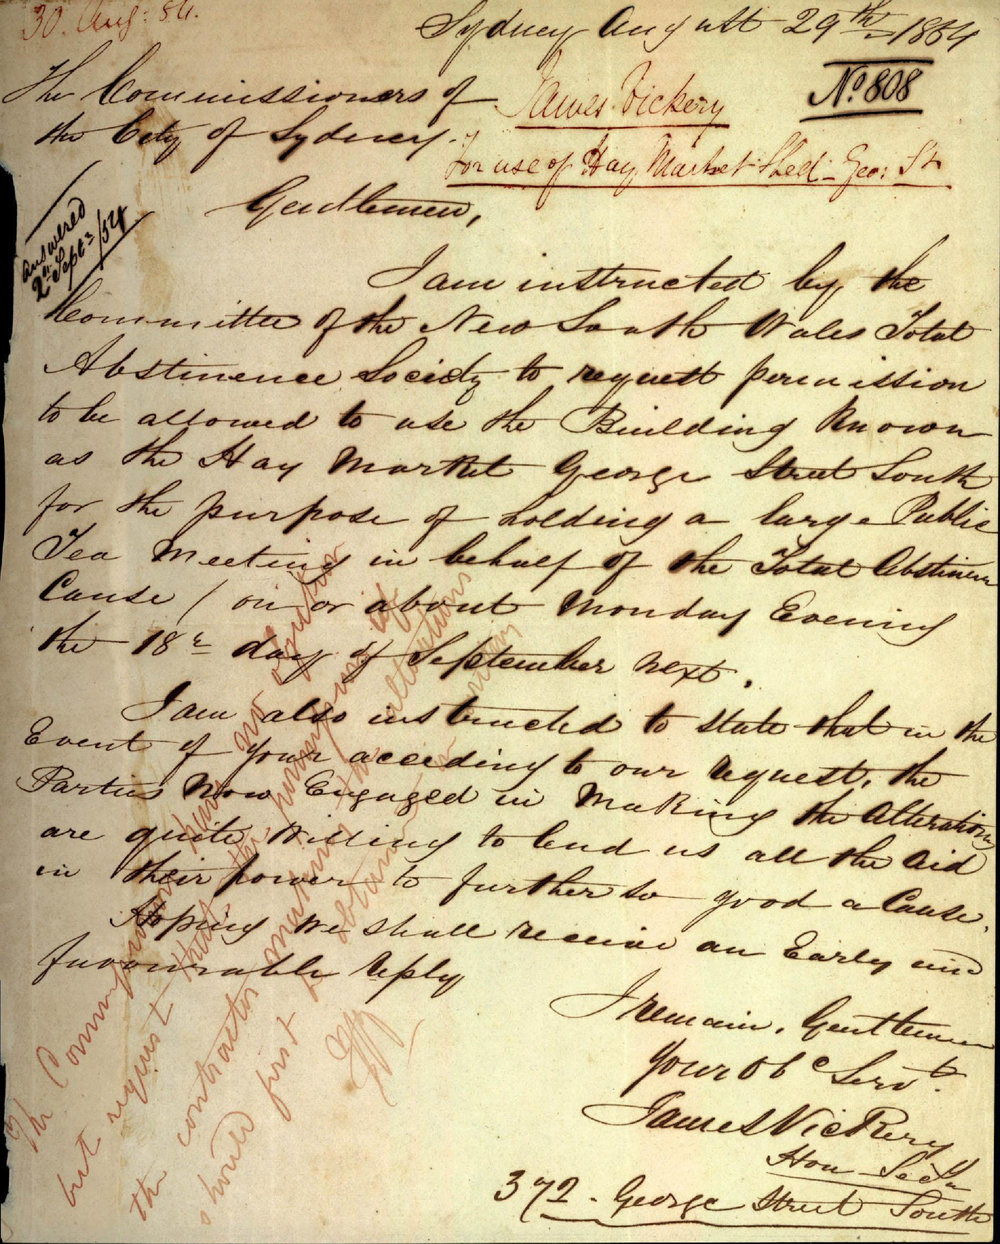 30. Aug: 54.
Sydney August 29th 1854
No. 808
The Commissioners of
the City of Sydney.
James Vickery
for use of Hay Market Shed - Geo: St
Answered
2nd Septr /54
Gentlemen,
I am instructed by the
Committee of the New South Wales Total
Abstinence Society to request permission
to be allowed to use the Building Known
as the Hay Market George Street South
for the purpose of holding a large Public
Tea Meeting in behalf of the Total Abstinence
Cause / on or about Monday Evening
the 18th day of September next.
I am also instructed to state that in the
Event of your acceeding to our request, the
Parties Now Engaged in Making the Alterations
are quite Willing to lend us all the Aid
in their power to further so good a Cause.
Hoping we shall receive an Early and
favourable reply
I remain, Gentlemen
Your Obt Servt.
James Vickery
Hon Secy
372 - George Street South
The Commissioners have no objection
but request that the permission of
the contractor making the alterations
should first be obtained in writing